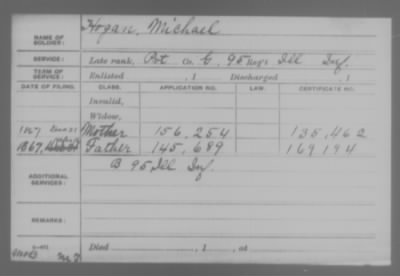 NAME OF SOLDIER: Hogan, Michael
SERVICE: Late rank, Pvt Co. G, 95 Reg't Ill Inf.
TERM OF SERVICE: Enlisted , 1 Discharged , 1
DATE OF FILING. CLASS. APPLICATION NO. LAW. CERTIFICATE NO.
Invalid,
Widow,
1867 Mother 156,254 135,462
1867, Father 145,689 169,194
ADDITIONAL SERVICES: B 95 Ill Inf.
REMARKS:
Died , 1 , at